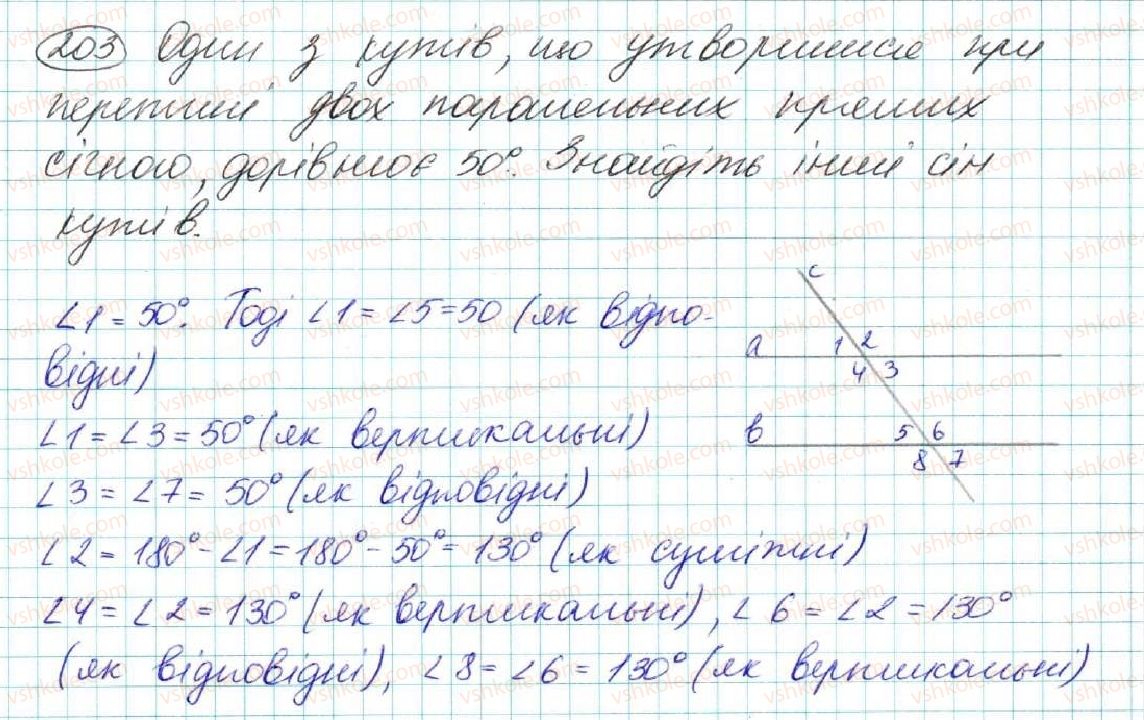 203 Один з кутів, що утворилися при
перетині двох паралельних прямих
січною, дорівнює 50°. Знайдіть інші сім
кутів.
∠1 = 50°. Тоді ∠1 = ∠5 = 50 (як відпо-
відні)
∠1 = ∠3 = 50° (як вертикальні)
∠3 = ∠7 = 50° (як відповідні)
∠2 = 180° - ∠1 = 180° - 50° = 130° (як суміжні)
∠4 = ∠2 = 130° (як вертикальні), ∠6 = ∠2 = 130°
(як відповідні), ∠8 = ∠6 = 130° (як вертикальні)
c
a 1 2
4 3
b 5 6
8 7
vshkole.com